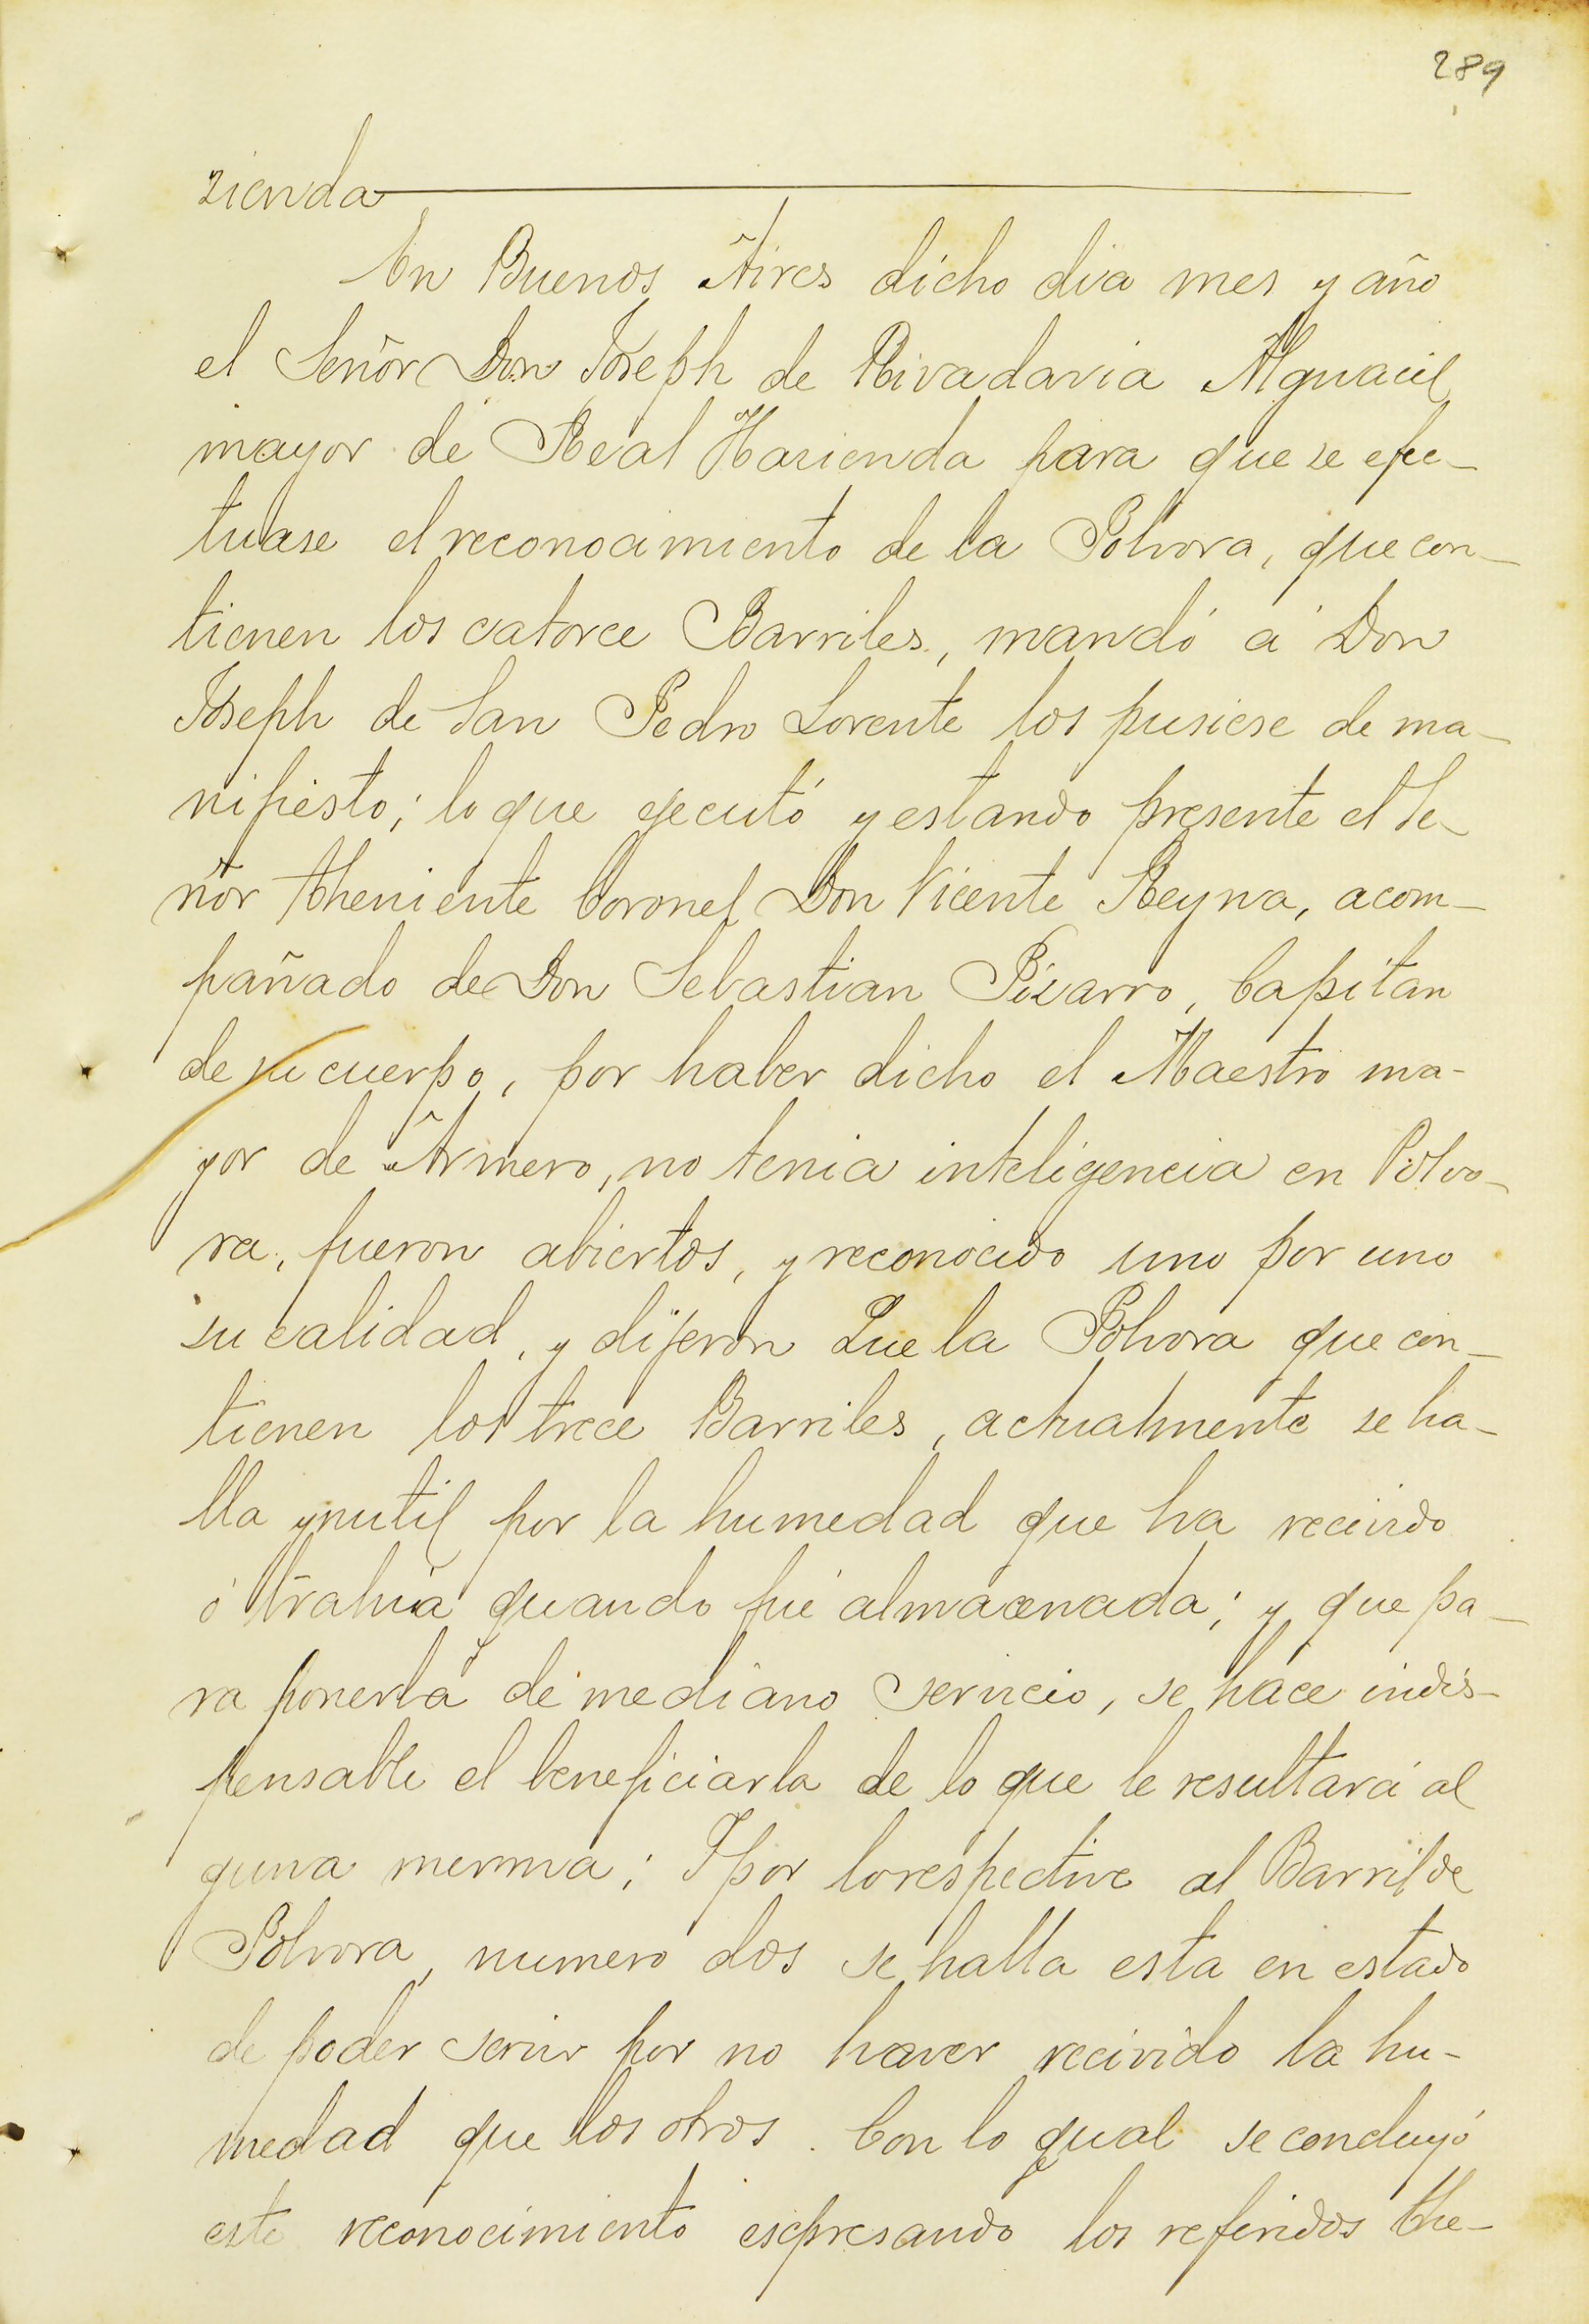 289
zienda
En Buenos Aires dicho dia mes y año
el Señor Don Joseph de Rivadavia Alguacil
mayor de Real Hazienda para que se efec-
tuase el reconocimiento de la Polvora, que con-
tienen los catorce Barriles, mandó á Don
Joseph de San Pedro Lorente los pusiese de ma-
nifiesto; lo que ejecutó y estando presente el Se-
ñor Theniente Coronel Don Vicente Reyna, acom-
pañado de Don Sebastian Pizarro, Capitan
de su cuerpo, por haber dicho el Maestro ma-
yor de Armero, no tenia inteligencia en Polvo-
ra, fueron abiertos, y reconocido uno por uno
su calidad, y dijeron Que la Polvora que con-
tienen los trece Barriles, actualmente se ha-
lla ynutil por la humedad que ha recivido
ó trahia quando fué almacenada; y que pa-
ra ponerla de mediano servicio, se hace indis-
pensable el beneficiarla de lo que le resultará al
guna merma; Y por lo respective al Barril de
Polvora, numero dos se halla esta en estado
de poder servir por no haver recivido la hu-
medad que los otros. Con lo qual se concluyó
este reconocimiento espresando los referidos The-